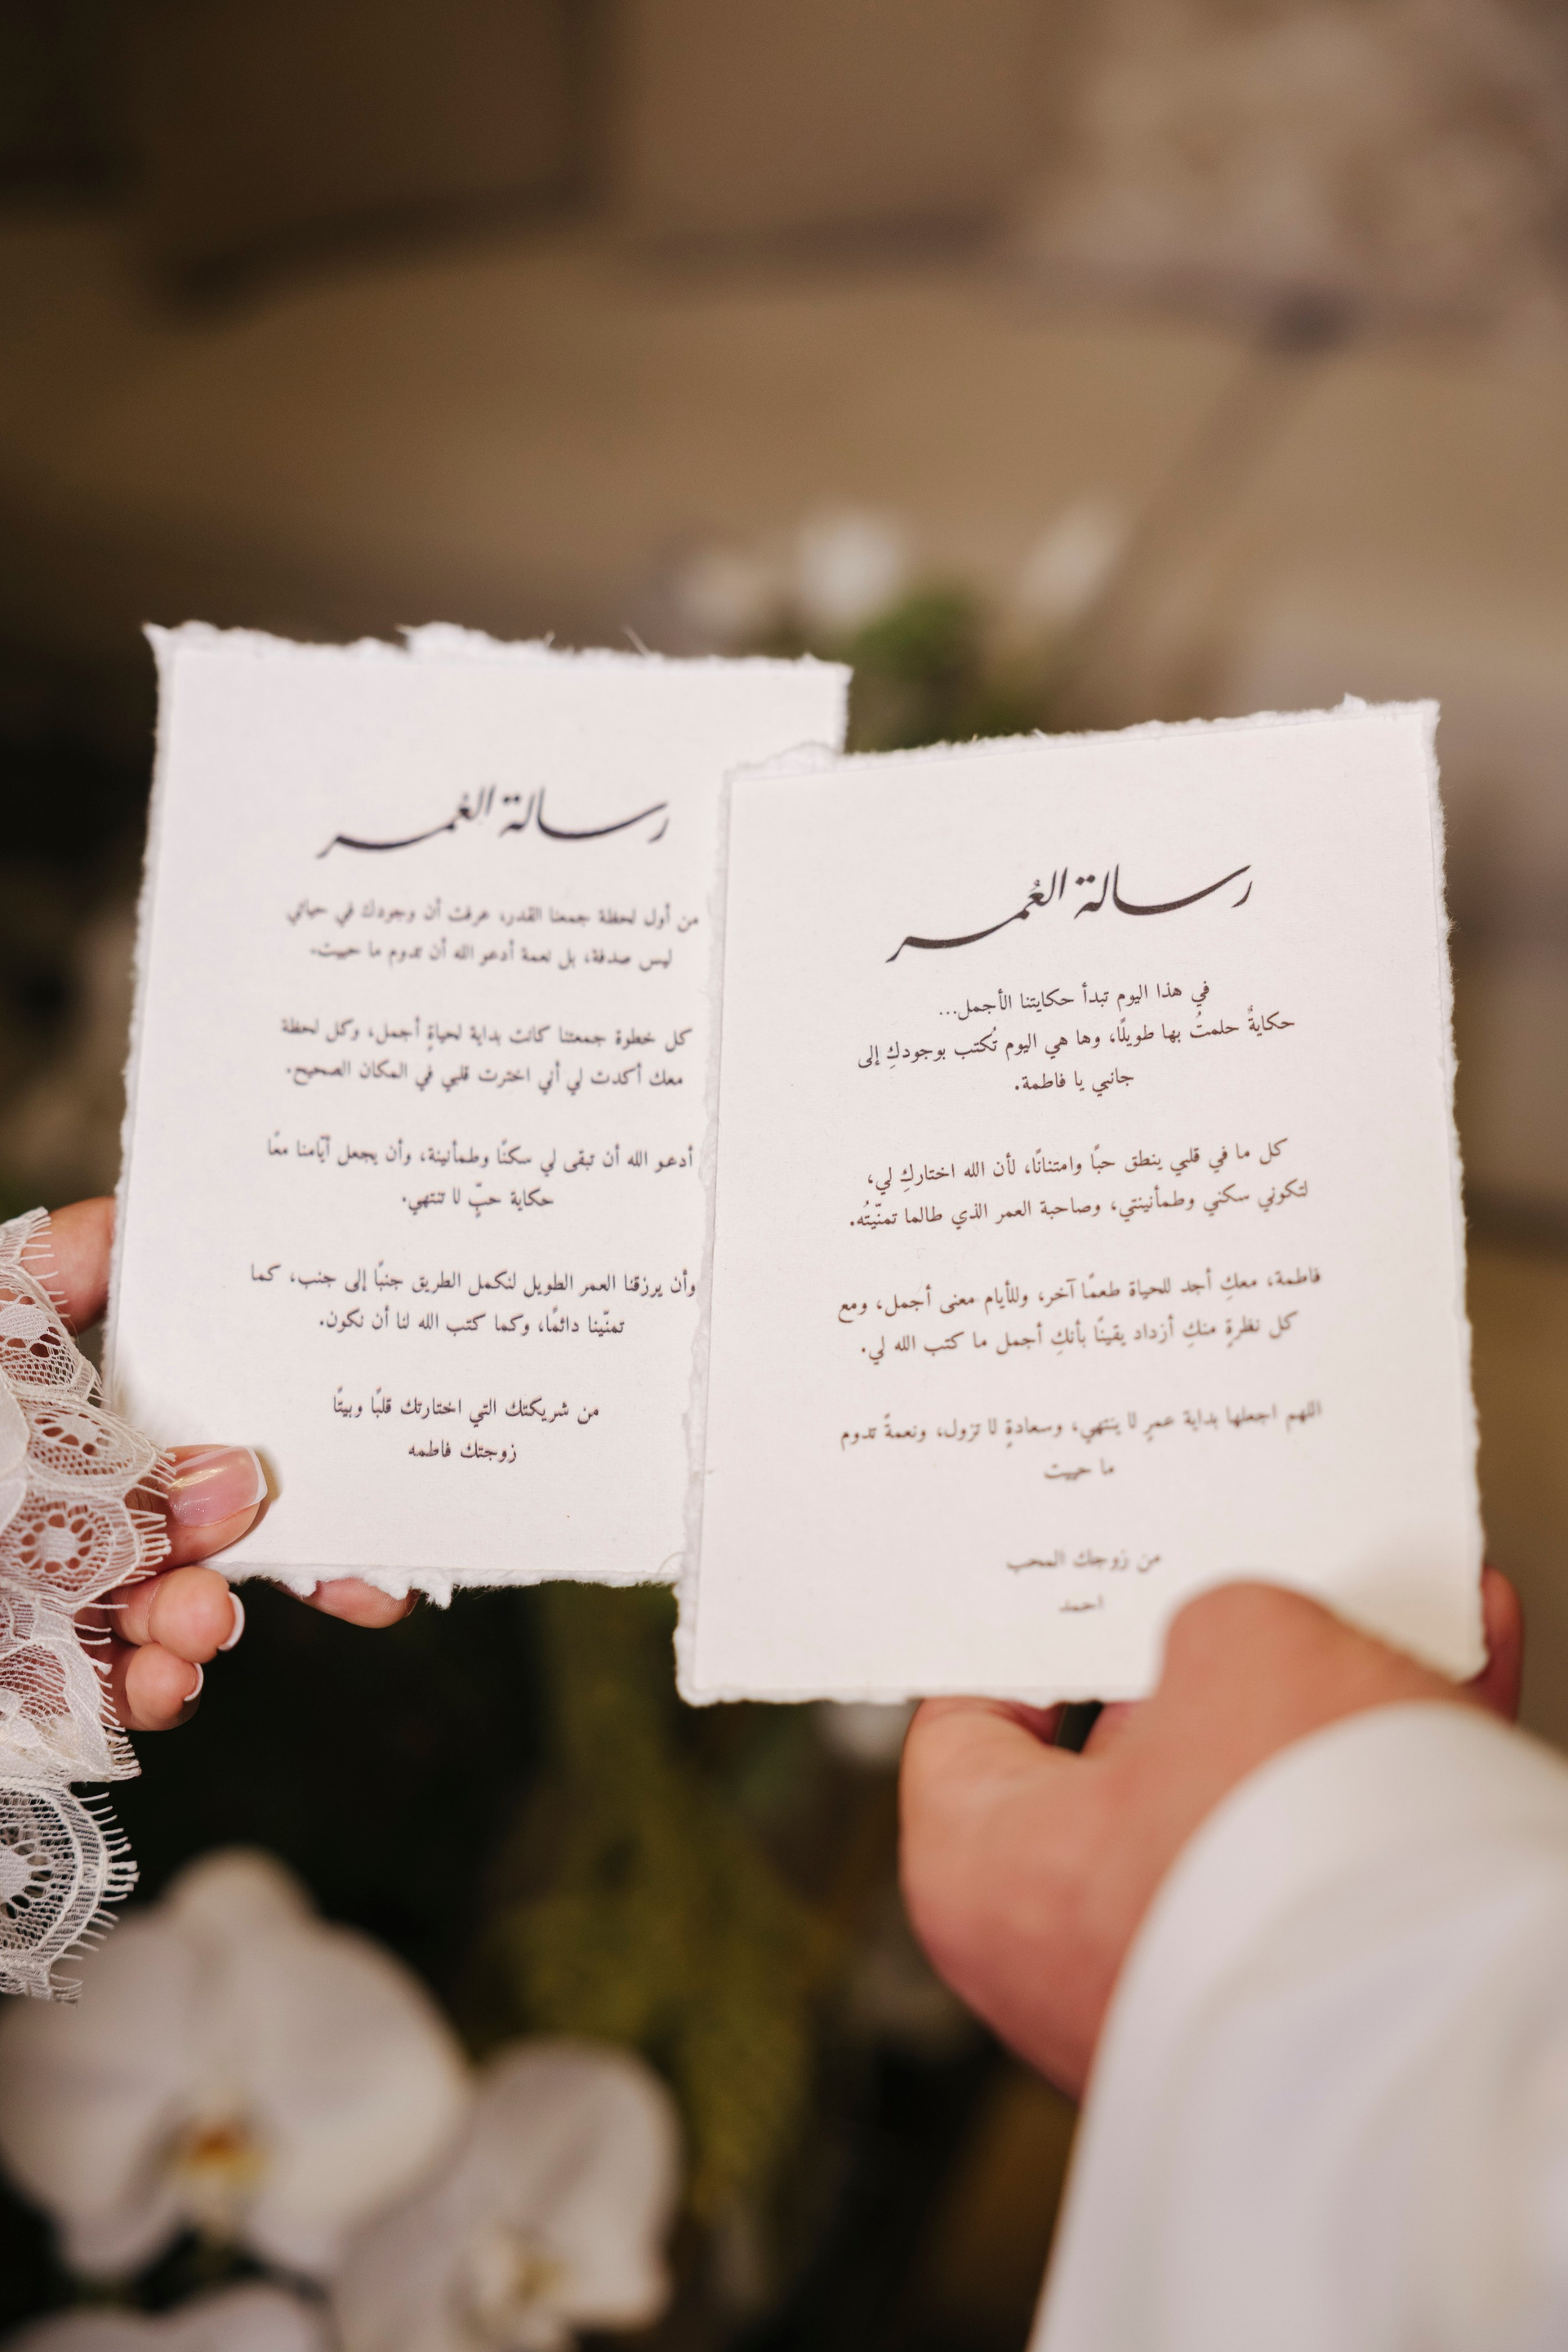 رسالة العُمر
في هذا اليوم تبدأ حكايتنا الأجمل...
حكايةٌ حلمتُ بها طويلًا، وها هي اليوم تُكتب بوجودكِ إلى
جانبي يا فاطمة.
كل ما في قلبي ينطق حبًا وامتنانًا، لأن الله اختاركِ لي،
لتكوني سكني وطمأنينتي، وصاحبة العمر الذي طالما تمنّيتُه.
فاطمة، معكِ أجد للحياة طعمًا آخر، وللأيام معنى أجمل، ومع
كل نظرةٍ منكِ أزداد يقينًا بأنكِ أجمل ما كتب الله لي.
اللهم اجعلها بداية عمرٍ لا ينتهي، وسعادةٍ لا تزول، ونعمةً تدوم
ما حييت
من زوجك المحب
احمد
رسالة العُمر
من أول لحظة جمعنا القدر، عرفت أن وجودك في حياتي
ليس صدفة، بل نعمة أدعو الله أن تدوم ما حييت.
كل خطوة جمعتنا كانت بداية لحياةٍ أجمل، وكل لحظة
معك أكدت لي أني اخترت قلبي في المكان الصحيح.
أدعو الله أن تبقى لي سكنًا وطمأنينة، وأن يجعل أيّامنا معًا
حكاية حبٍّ لا تنتهي.
وأن يرزقنا العمر الطويل لنكمل الطريق جنبًا إلى جنب، كما
تمنّينا دائمًا، وكما كتب الله لنا أن نكون.
من شريكتك التي اختارتك قلبًا وبيتًا
زوجتك فاطمه